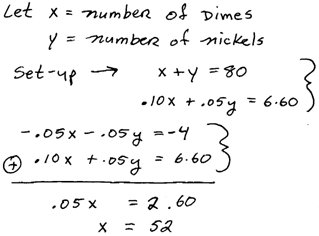 Let x = number of Dimes
y = number of nickels
Set-up → x + y = 80
.10x + .05y = 6.60
-.05x - .05y = -4
⊕ .10x + .05y = 6.60
.05x = 2.60
x = 52